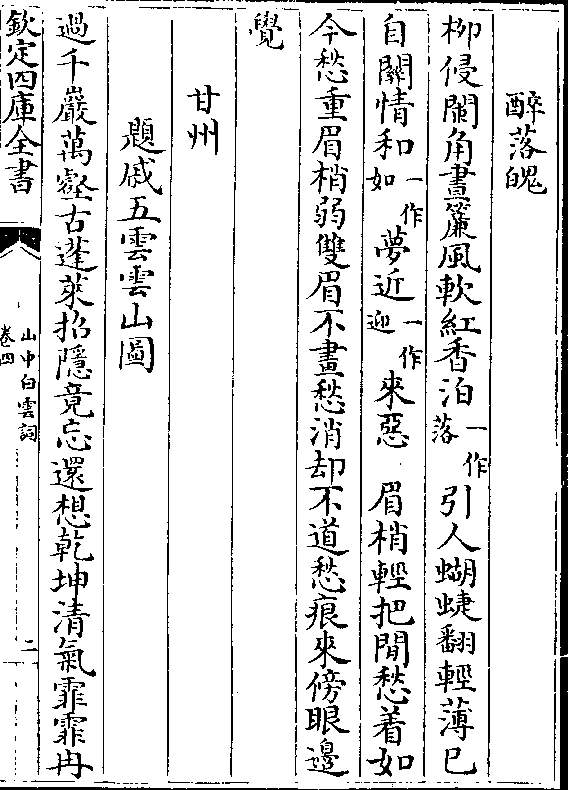 醉落魄
柳侵闌角畫簾風軟紅香泊一作落引人蝴蝶翻輕薄已
自關情和一作如夢近一作迎來惡　眉梢輕把閒愁着如
今愁重眉梢弱雙眉不畫愁消却不道愁痕來傍眼邊
覺
甘州
題戚五雲雲山圖
過千巖萬壑古蓬萊招隱竟忘還想乾坤清氣霏霏冉
欽定四庫全書
山中白雲詞
卷四
二